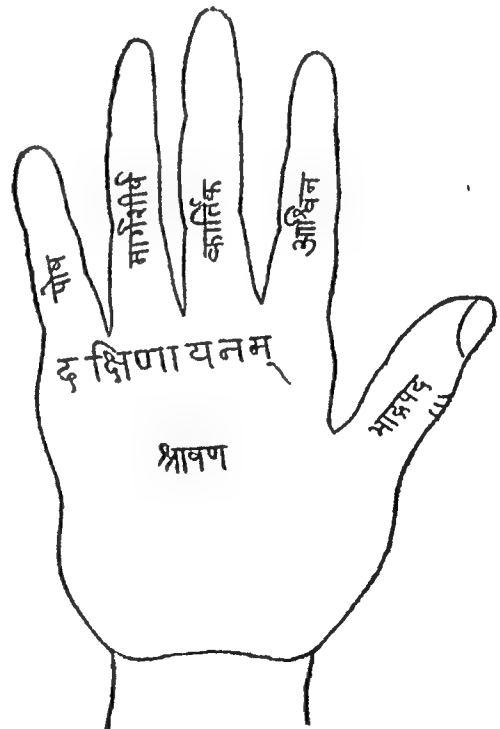 पोष
मार्गशीर्ष
कार्तिक
आश्विन
दक्षिणायनम्
भाद्रपद
श्रावण